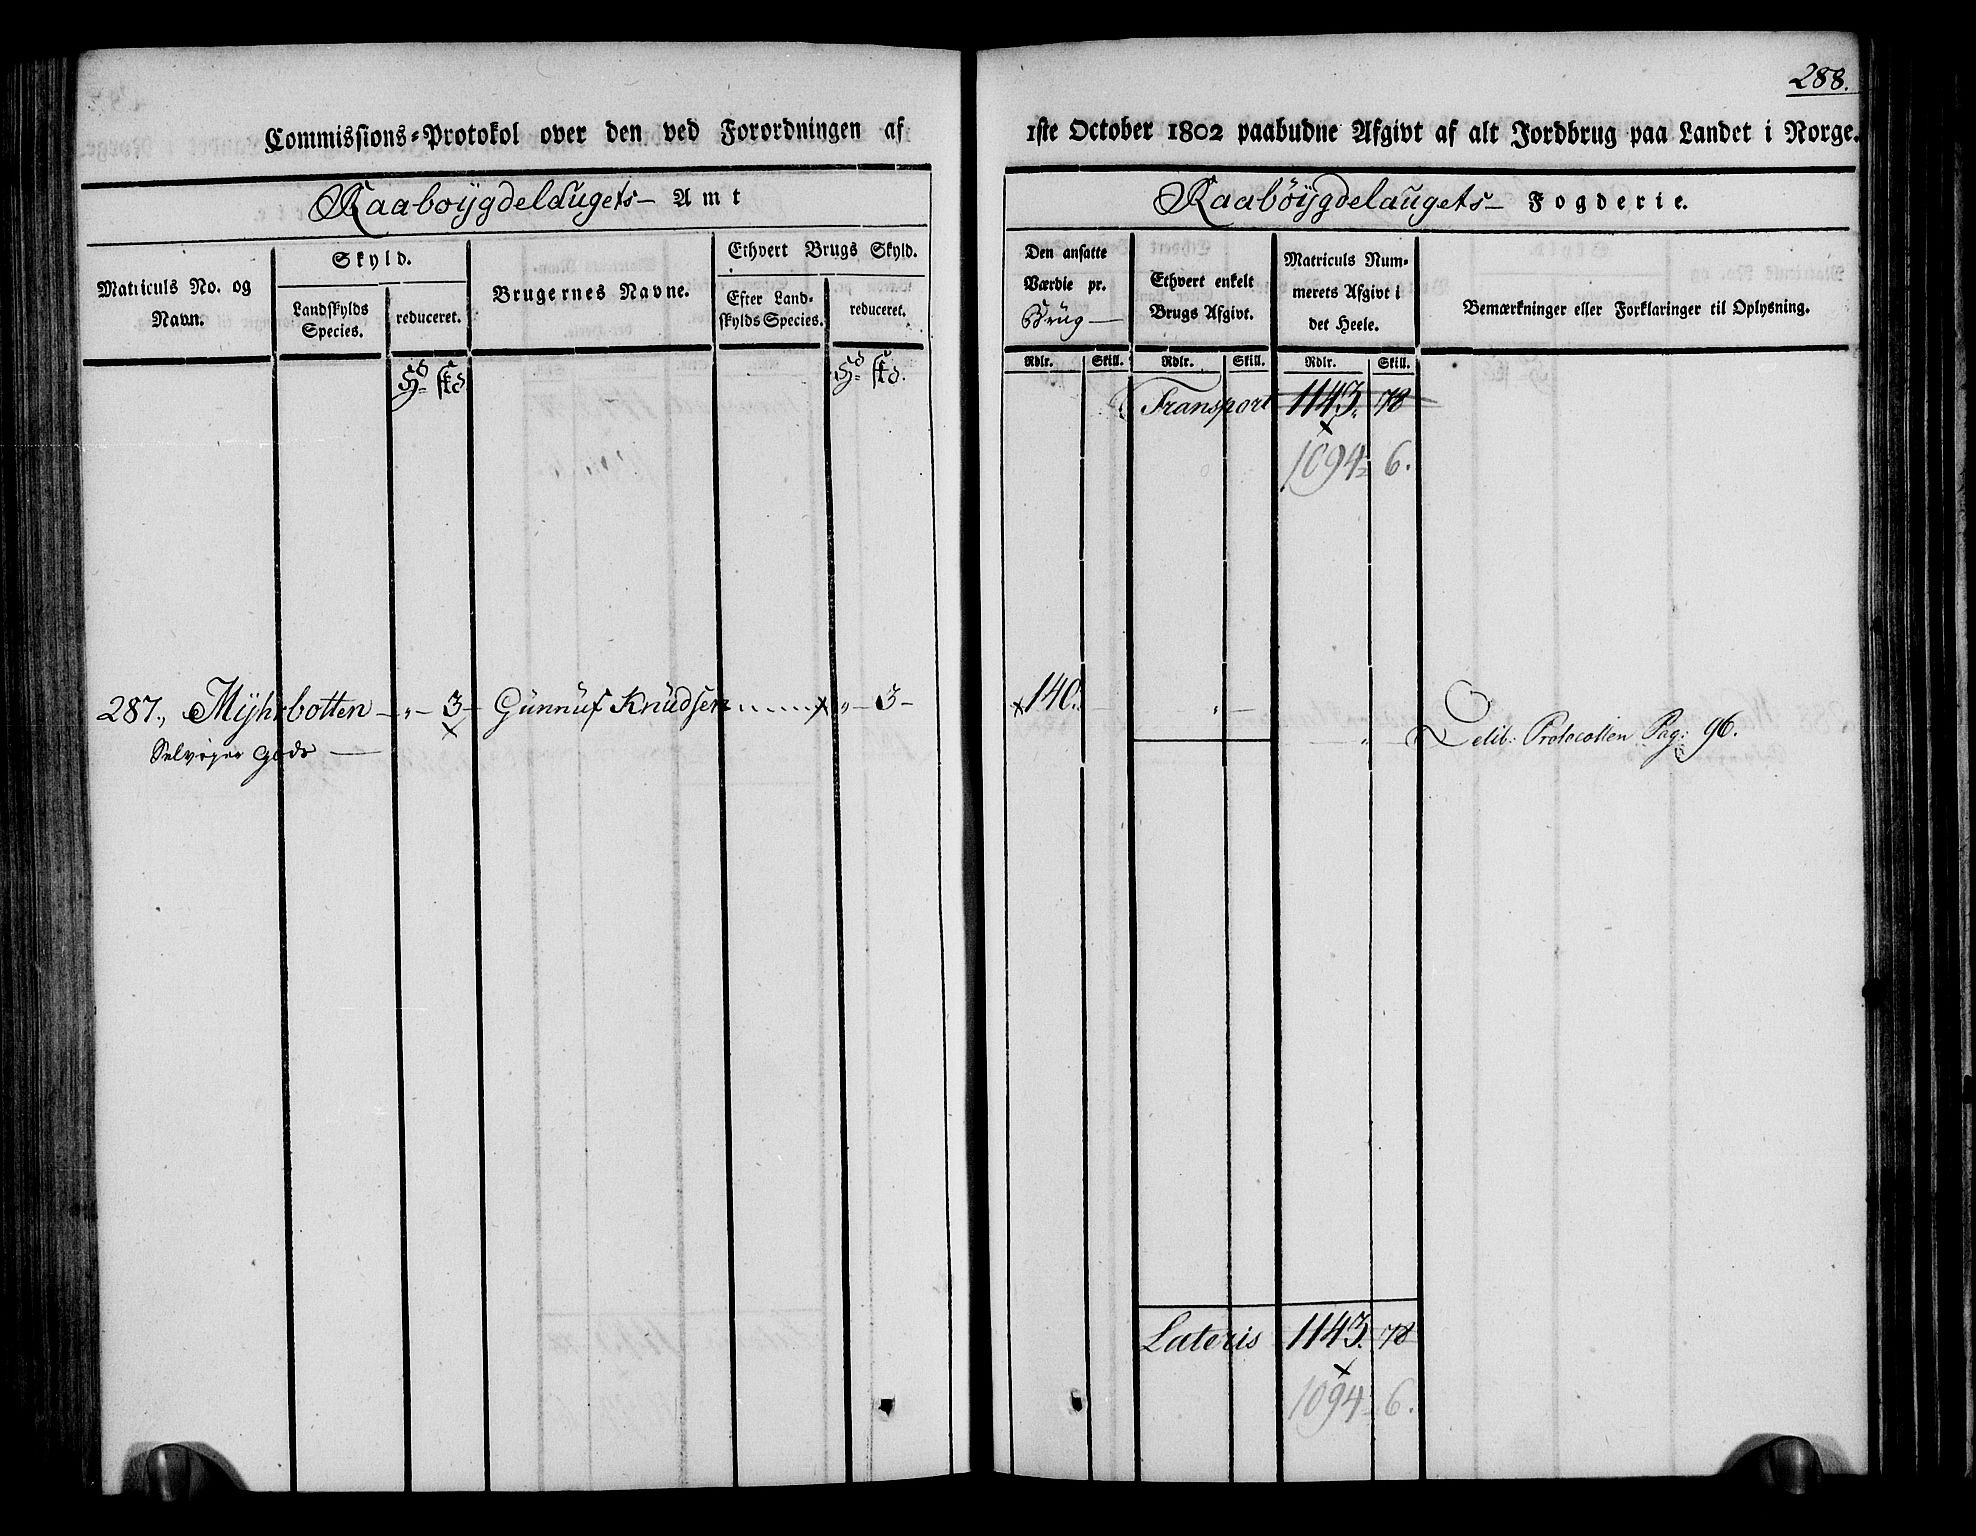 288.
Commissions-Protokol over den ved Forordningen af 1ste October 1802 paabudne Afgivt af alt Jordbrug paa Landet i Norge.
Raabøygdelaugets- Amt
Raabøygdelaugets- Fogderie.
Matriculs No. og Navn.
Skyld.
Landskylds Species.
reduceret.
Brugernes Navne.
Ethvert Brugs Skyld.
Efter Landskylds Species.
reduceret.
Den ansatte Værdie pr. Brüg
Ethvert enkelt Brugs Afgivt.
Matriculs Nummerets Afgivt i det Heele.
Bemærkninger eller Forklaringer til Oplysning.
Rdlr. Skill. Rdlr. Skill. Rdlr. Skill.
Transport 1143. 78
1094 6.
287., Myhrbotten - „ - 3 - Günnuf Knüdsen „ - 3 - 140. „ „ Delib: Protocollen Pag: 96.
Selveyer Gods
Lateris 1143. 78
1094 6.